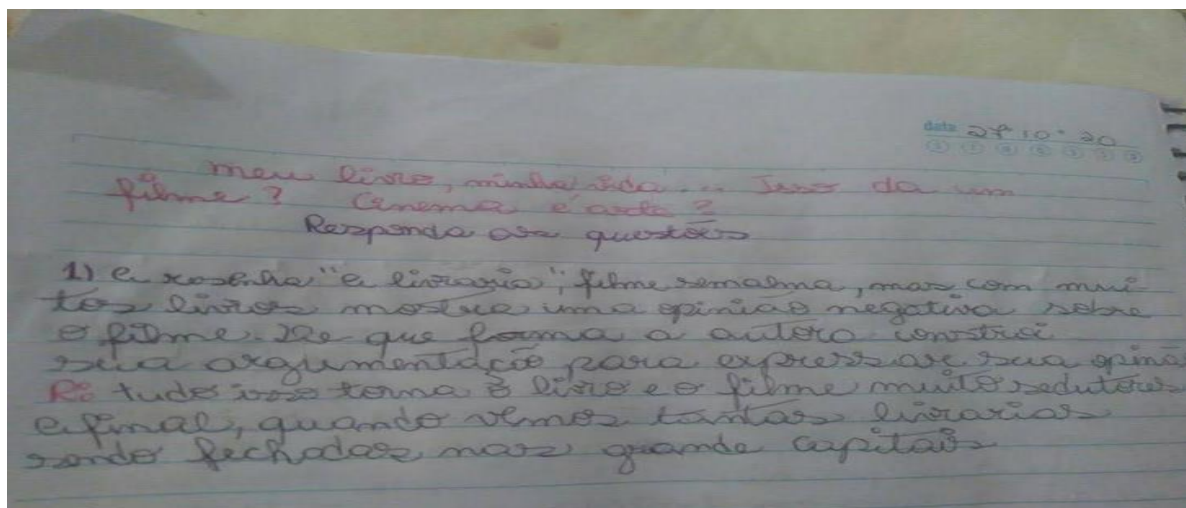 data 27 10 20
meu livro, minha vida... Isso da um
filme? Cinema é arte?
Responda as questões
1) A resenha "A livraria", filme semalma, mas com mui
tos livros mostra uma opinião negativa sobre
o filme. De que forma a autora constroi
sua argumentação para expressar sua opinã
R: tudo isso torna o livro e o filme muito sedutores
afinal, quando vemos tantas livrarias
sendo fechadas nas grande capitais